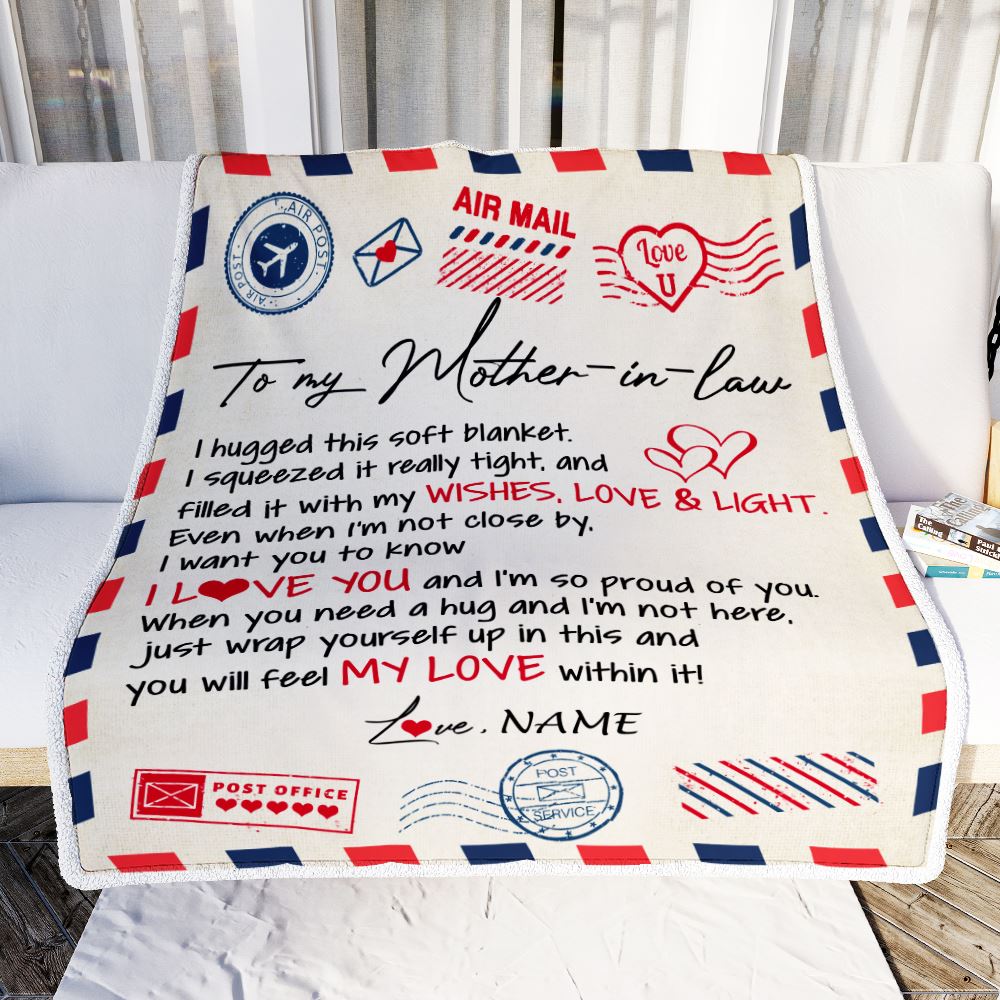 AIR POST
AIR POST
AIR MAIL
Love
U
To my Mother-in-law
I hugged this soft blanket.
I squeezed it really tight, and
filled it with my WISHES, LOVE & LIGHT.
Even when I'm not close by,
I want you to know
I L❤VE YOU and I'm so proud of you.
When you need a hug and I'm not here,
just wrap yourself up in this and
you will feel MY LOVE within it!
L❤ve, NAME
POST OFFICE
POST
SERVICE
The
Calling